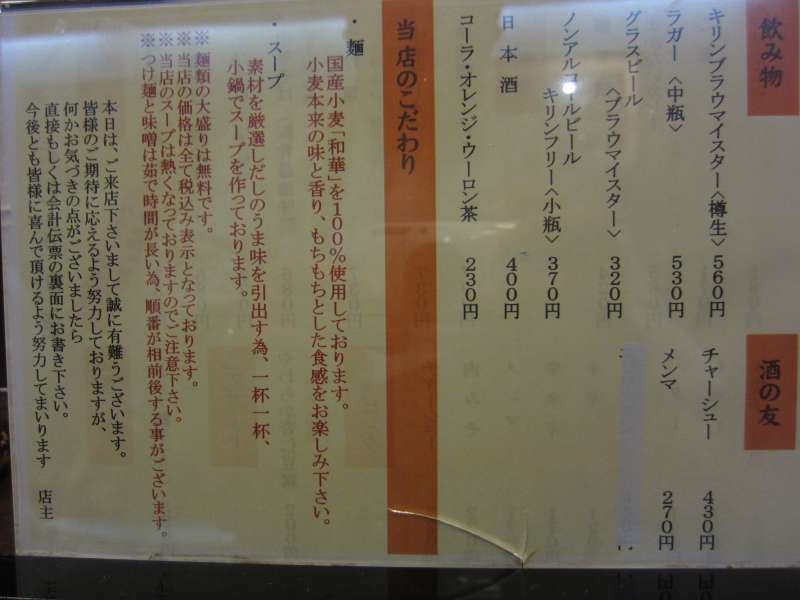 飲み物
キリンブラウマイスター〈樽生〉 560円
ラガー 〈中瓶〉 530円
グラスビール
〈ブラウマイスター〉 320円
ノンアルコールビール
キリンフリー〈小瓶〉 370円
日本酒 400円
コーラ・オレンジ・ウーロン茶 230円
酒の友
チャーシュー 430円
メンマ 270円
当店のこだわり
・麺
国産小麦「和華」を100%使用しております。
小麦本来の味と香り、もちもちとした食感をお楽しみ下さい。
・スープ
素材を厳選しだしのうま味を引出す為、一杯一杯、
小鍋でスープを作っております。
※麺類の大盛りは無料です。
※当店の価格は全て税込み表示となっております。
※当店のスープは熱くなっておりますのでご注意下さい。
※つけ麺と味噌は茹で時間が長い為、順番が相前後する事がございます。
本日は、ご来店下さいまして誠に有難うございます。
皆様のご期待に応えるよう努力しておりますが、
何かお気づきの点がございましたら
直接もしくは会計伝票の裏面にお書き下さい。
今後とも皆様に喜んで頂けるよう努力してまいります 店主